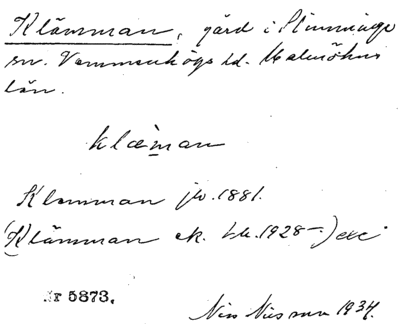 Klämman, gård i Slimminge
sn. Vemmenhögs hd. Malmöhus
län.
klæman
Klemman jb. 1881.
(Klämman ek. bl. 1928—)
Nr 5873.
Nils Nilsson 1934.